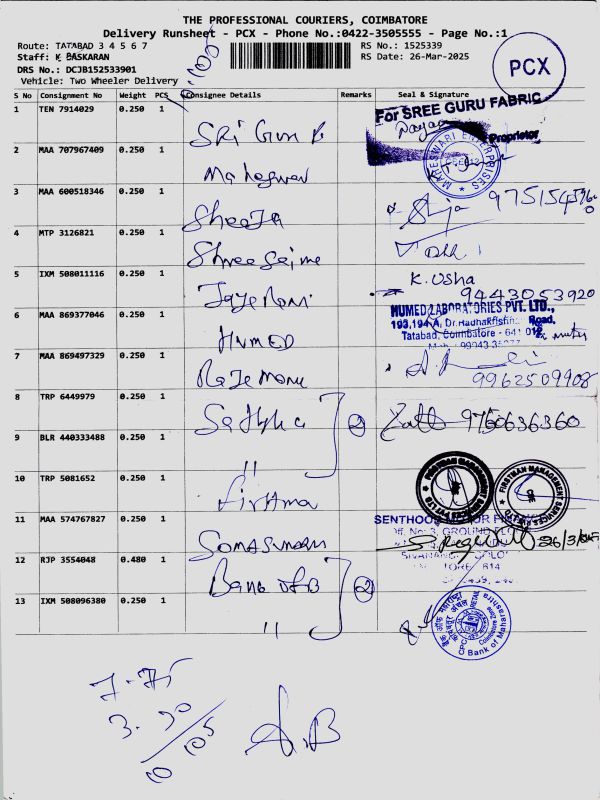 THE PROFESSIONAL COURIERS, COIMBATORE
Delivery Runsheet - PCX - Phone No.:0422-3505555 - Page No.:1
Route: TATABAD 3 4 5 6 7
Staff: K BASKARAN
DRS No.: DCJB152533901
Vehicle: Two Wheeler Delivery
RS No.: 1525339
RS Date: 26-Mar-2025
PCX
S No Consignment No Weight PCS Consignee Details Remarks Seal & Signature
For SREE GURU FABRIC
Proprietor
1 TEN 7914029 0.250 1 SRi Guru
MAHESWARI ENTERPRISES
2 MAA 707967409 0.250 1 Maheswari
3 MAA 600518346 0.250 1 Sheeja
4 MTP 3126821 0.250 1
5 IXM 508011116 0.250 1 Jayaram K. Usha
9443053920
6 MAA 869377046 0.250 1 HUMED
HUMED LABORATORIES PVT. LTD.,
193,194-A, Dr.Radhakrishnan Road,
Tatabad, Coimbatore - 641 012
7 MAA 869497329 0.250 1
9962509908
8 TRP 6449979 0.250 1 Sathya 2 9750636360
9 BLR 440333488 0.250 1 "
FIRSTMAN MANAGEMENT SERVICES PVT LTD
FIRSTMAN MANAGEMENT SERVICES PVT LTD
10 TRP 5081652 0.250 1
SENTHOOR
GROUND
11 MAA 574767827 0.250 1 Somasundaram 26/3/2025
12 RJP 3554048 0.480 1 Bank of B 2
13 IXM 508096380 0.250 1 "
Bank of Maharashtra
7.75
3.30
10 105
A.B